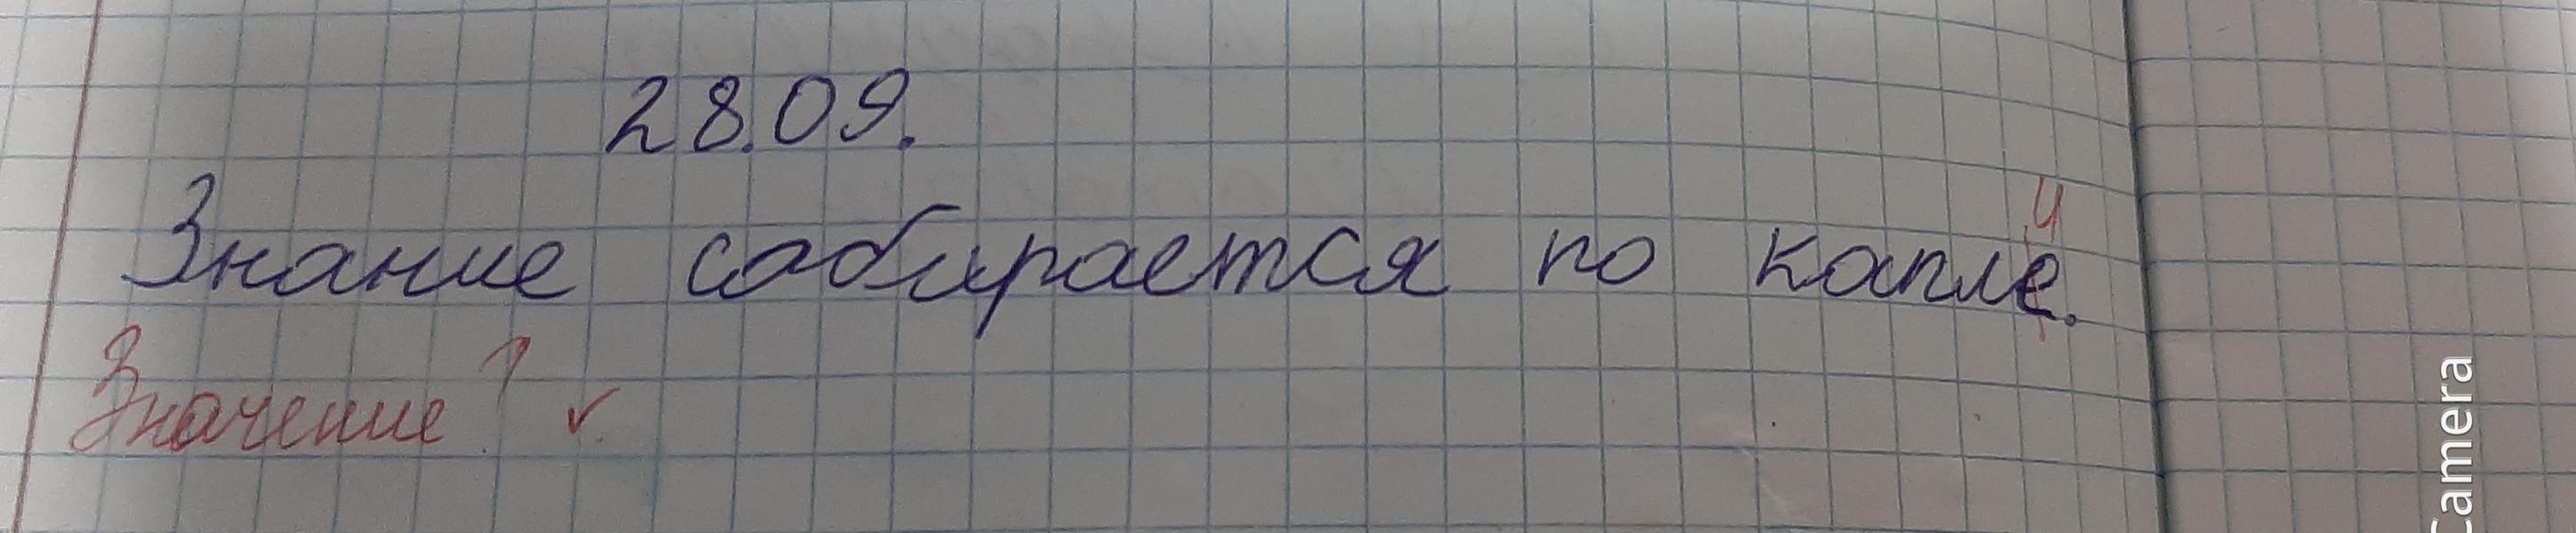 28.09.
и
Знание собирается по капле.
Значение? ✓
Camera